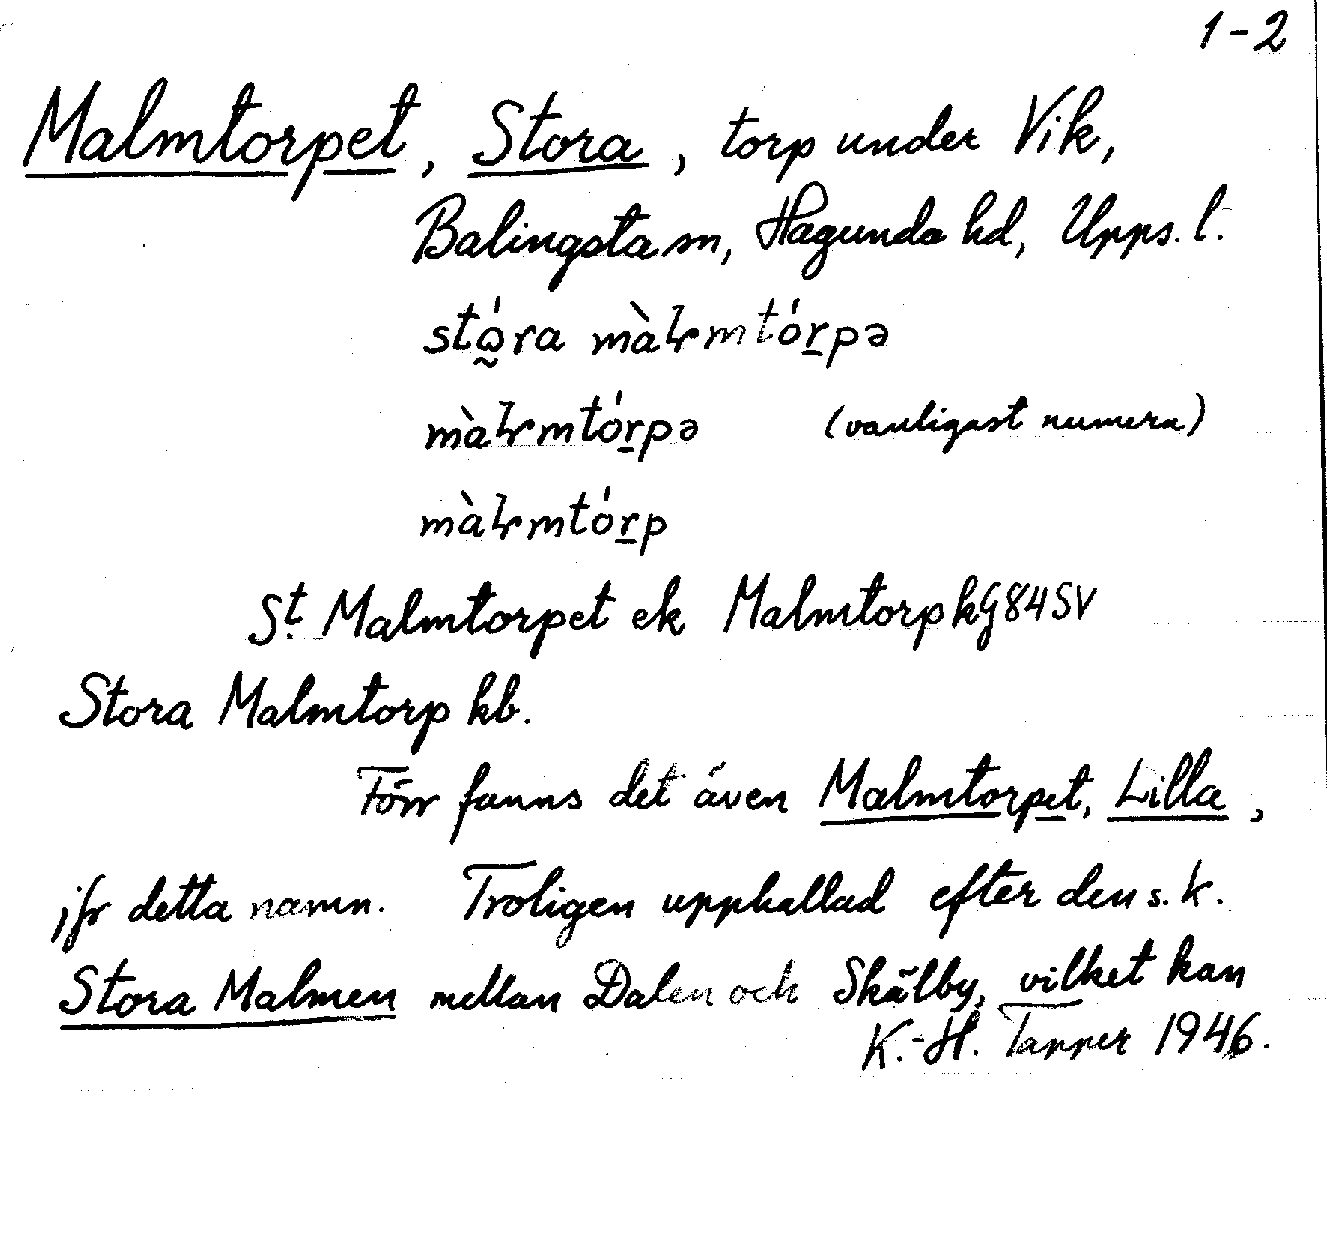 1-2
Malmtorpet, Stora, torp under Vik,
Balingsta sn, Hagunda hd, Upps. l.
stó̰ra màꞎmtór̲pə
màꞎmtór̲pə (vanligast numera)
màꞎmtór̲p
St. Malmtorpet ek Malmtorp kG84SV
Stora Malmtorp kb.
Förr fanns det även Malmtorpet, Lilla,
jfr detta namn. Troligen uppkallad efter den s.k.
Stora Malmen mellan Dalen och Skälby, vilket kan
K.-H. Tapper 1946.